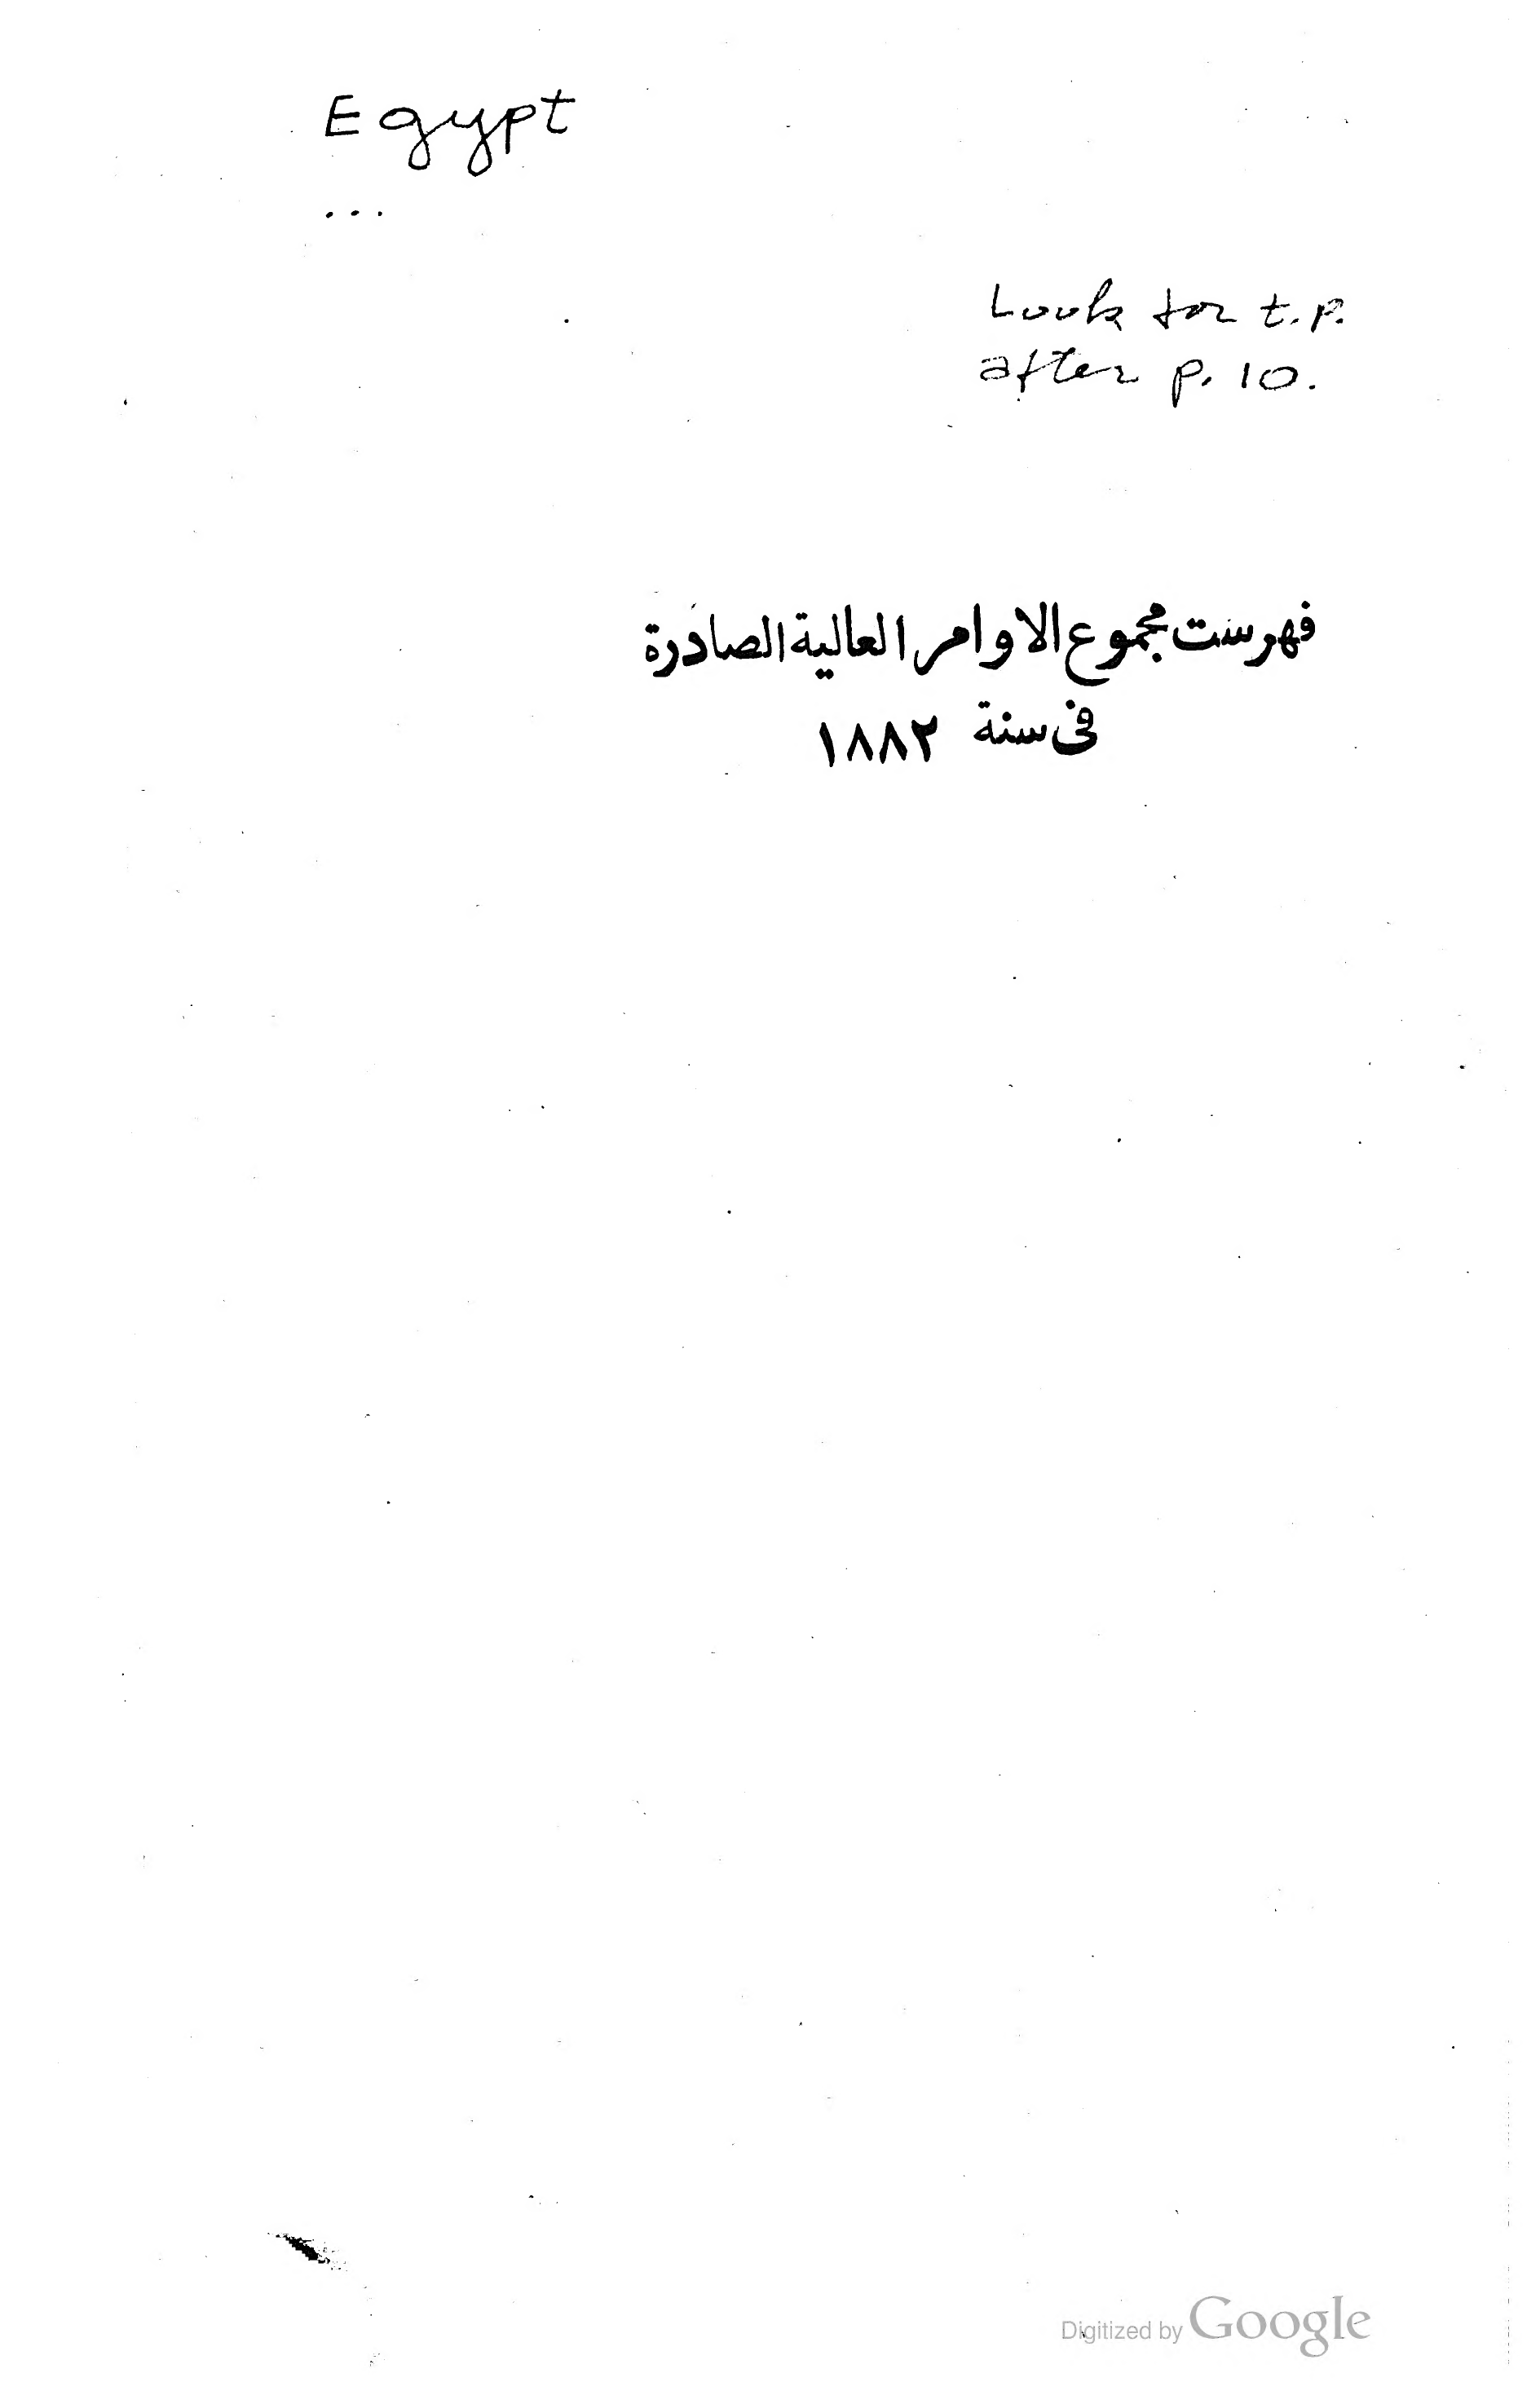 Egypt
...
Look for t.p.
after p. 10.
فهرست مجموع الاوامر العالية الصادرة
فى سنة ١٨٨٢
Digitized by Google